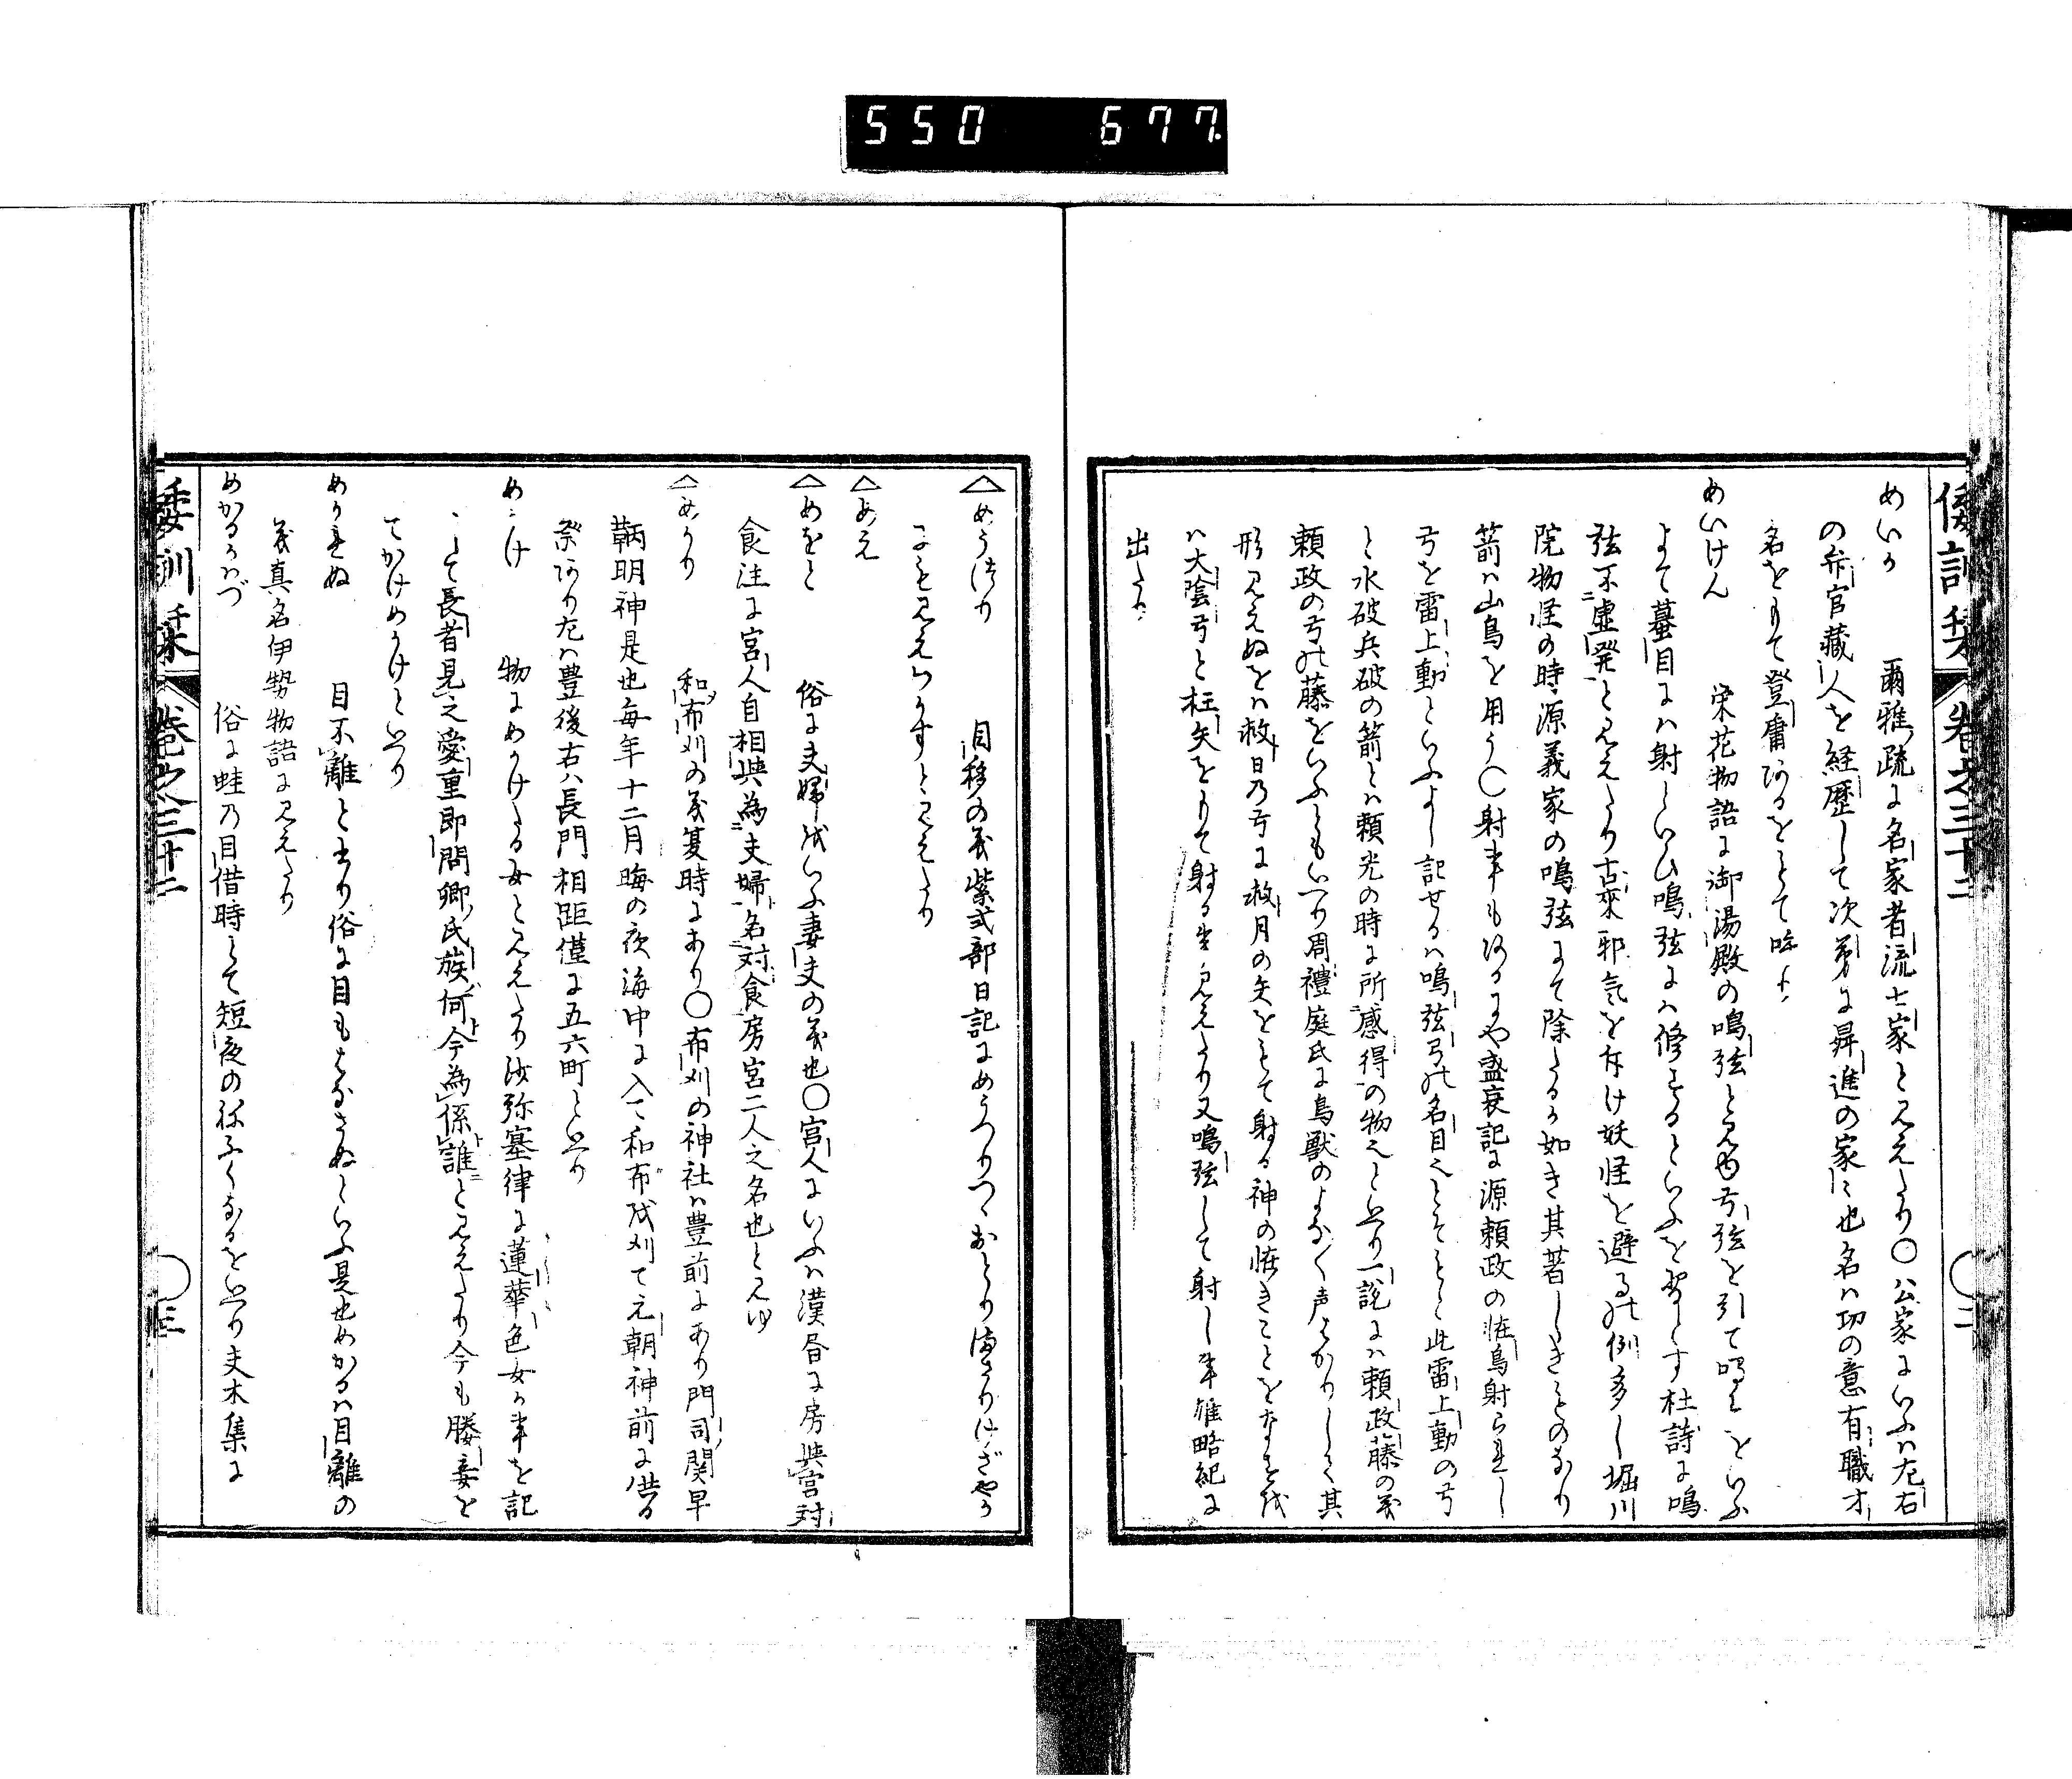 550 677
倭訓栞 巻之三十二 ○二
めいか 爾雅疏に名家者流士家と見えたり○公家にいふハ左右
の弁官蔵人を経歴して次第に昇進の家に也名ハ功の意有職才
名をもて登庸
めいけん 栄花物語に御湯殿の鳴弦と見ゆ弓弦を引て鳴をいふ
よて蟇目にハ射といひ鳴弦にハ修するといふを習とす杜詩に鳴
弦不虚発と見えたり古来邪気を斥け妖怪を避るの例多し堀川
院物怪の時源義家の鳴弦にて除たるか如き其著しきものなり
箭ハ山鳥を用う○射事もあるにや盛衰記に源頼政の怪鳥射られし
弓を雷上動といふよし記せるハ鳴弦弓の名目也とそもと此雷上動の弓
と水破兵破の箭とハ頼光の時に所感得の物也といへり一説にハ頼政藤の義
頼政の弓の藤をいふともいへり周禮庭氏に鳥獣のよなく声はかりして其
形見えぬをハ救日乃弓に救月の矢をもて射る神の怪きことをなすを
ハ大陰弓と枉矢をもて射る事見えたり又鳴弦して射し事雄略紀に
出たり
△めうつり 目移の義紫式部日記にめうつりつゝおとりまさりけざやか
にも見えわかすと見えたり
△めえ
△めをと 俗に夫婦をいふ妻夫の義也○宮人にいふハ漢書に房與宮対
食注に宮人自相與為夫婦名対食房宮二人之名也と見ゆ
△めかり 和布刈の義夏時にあり○布刈の神社ハ豊前にあり門司関早
鞆明神是也毎年十二月晦の夜海中に入て和布を刈て元朝神前に供る
祭あり左ハ豊後右ハ長門相距僅に五六町といへり
めゝけ 物にめかけたる女と見えたり沙弥塞律に蓮華色女か事を記
して長者見之愛重即問卿氏族何今為係誰と見えたり今も媵妾を
てかけめかけといへり
めかれぬ 目不離と書り俗に目もはなさぬといふ是也めかるハ目離の
義真名伊勢物語に見えたり
めかるかハづ 俗に蛙乃目借時とて短夜のねふくなるをいへり夫木集に
倭訓栞 巻之三十二 ○三